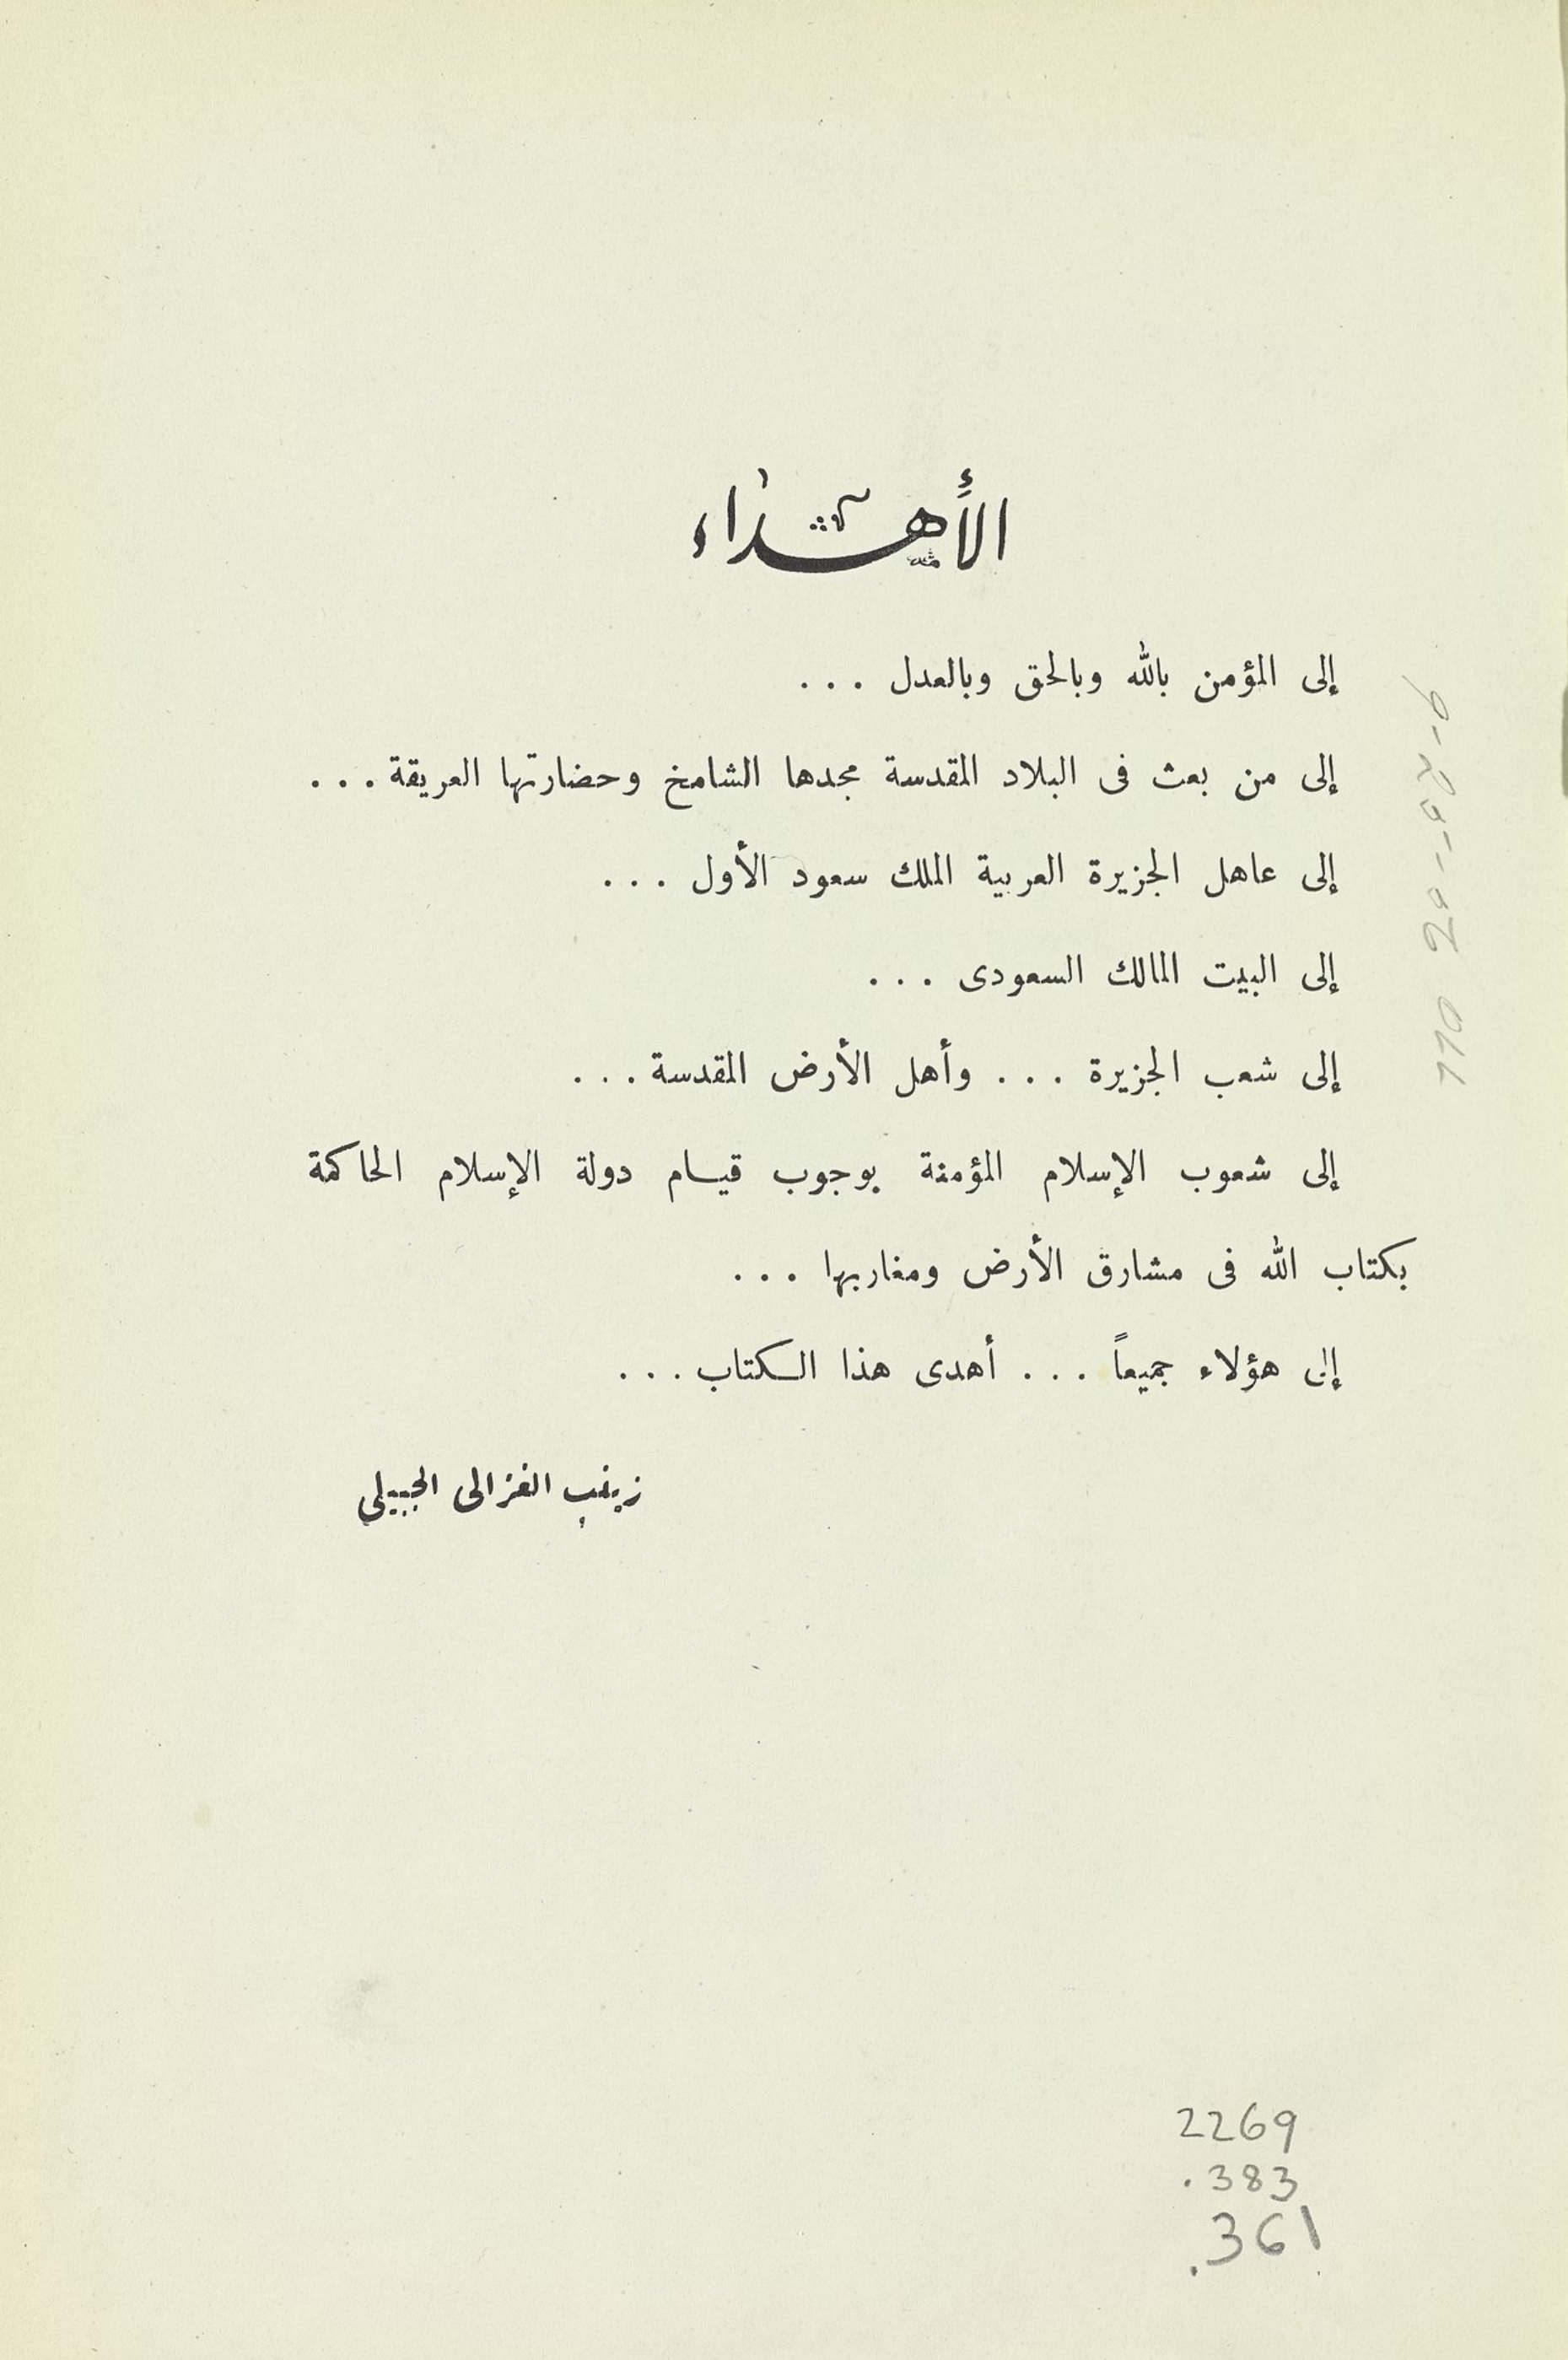 الأهداء
إلى المؤمن بالله وبالحق وبالعدل ...
إلى من بعث فى البلاد المقدسة مجدها الشامخ وحضارتها العريقة ...
إلى عاهل الجزيرة العربية الملك سعود الأول ...
إلى البيت المالك السعودى ...
إلى شعب الجزيرة ... وأهل الأرض المقدسة ...
إلى شعوب الإسلام المؤمنة بوجوب قيام دولة الإسلام الحاكمة
بكتاب الله فى مشارق الأرض ومغاربها ...
إلى هؤلاء جميعاً ... أهدى هذا الكتاب ...
زينب الغزالى الجبيلى
2269
.383
.361